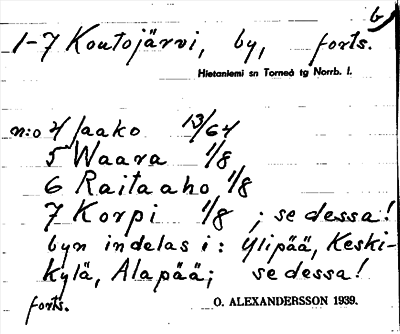 b
1-7 Koutojärvi, by, forts.
Hietaniemi sn Torneå tg Norrb. l.
n:o 4 Jaako 13/64
5 Waara 1/8
6 Raitaaho 1/8
7 Korpi 1/8 ; se dessa!
byn indelas i: Ylipää, Keski-
kylä, Alapää; se dessa!
forts.
O. ALEXANDERSSON 1939.